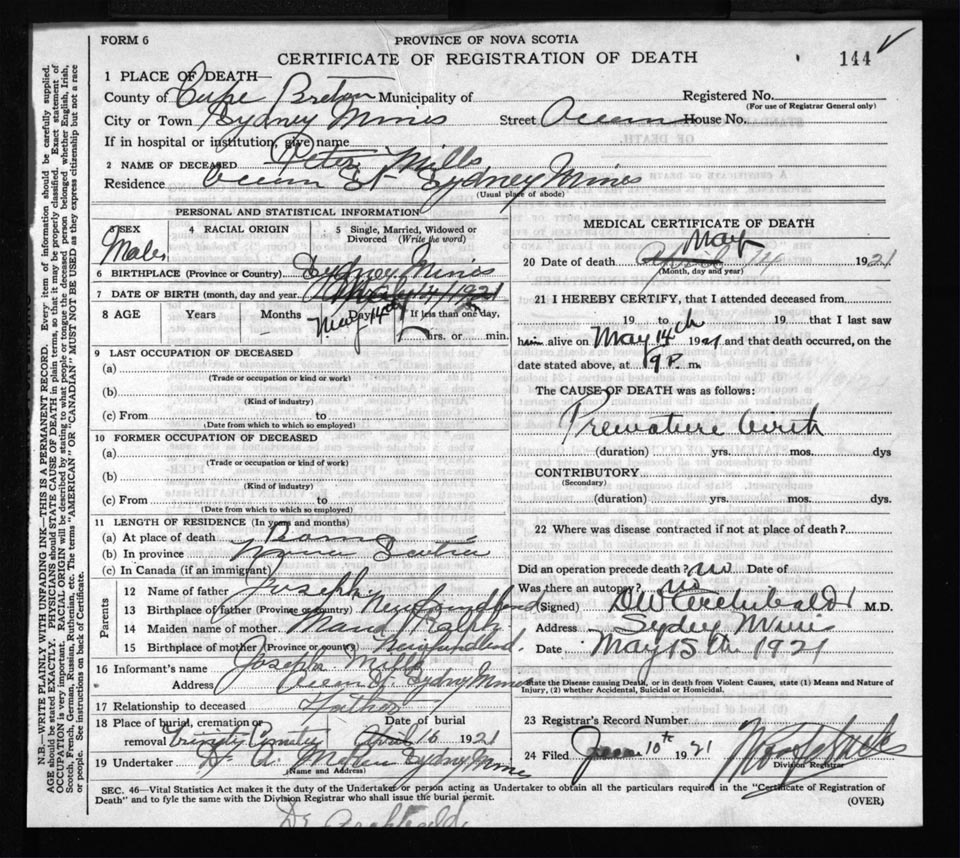 FORM 6
PROVINCE OF NOVA SCOTIA
CERTIFICATE OF REGISTRATION OF DEATH
144
1 PLACE OF DEATH—
County of Cape Breton Municipality of
Registered No.
(For use of Registrar General only)
City or Town Sydney Mines Street Ocean House No.
If in hospital or institution, give name
2 NAME OF DECEASED Peter Mills
Residence Ocean St Sydney Mines
(Usual place of abode)
PERSONAL AND STATISTICAL INFORMATION
3 SEX Male
4 RACIAL ORIGIN
5 Single, Married, Widowed or Divorced (Write the word)
6 BIRTHPLACE (Province or Country) Sydney Mines
7 DATE OF BIRTH (month, day and year) 1921
May 14th
8 AGE Years Months Days If less than one day,
hrs. or min.
9 LAST OCCUPATION OF DECEASED
(a)
(Trade or occupation or kind of work)
(b)
(Kind of industry)
(c) From to
(Date from which to which so employed)
10 FORMER OCCUPATION OF DECEASED
(a)
(Trade or occupation or kind of work)
(b)
(Kind of industry)
(c) From to
(Date from which to which so employed)
11 LENGTH OF RESIDENCE (In years and months)
(a) At place of death
(b) In province Nova Scotia
(c) In Canada (if an immigrant)
Parents
12 Name of father Joseph
13 Birthplace of father (Province or country) Newfoundland
14 Maiden name of mother Maud
15 Birthplace of mother (Province or country) Newfoundland.
16 Informant's name Joseph Mills
Address Ocean St. Sydney Mines
17 Relationship to deceased Father
18 Place of burial, cremation or removal Trinity Cemetery
Date of burial April 16 1921
19 Undertaker Sydney Mines
(Name and Address)
MEDICAL CERTIFICATE OF DEATH
May
20 Date of death April 14 1921
(Month, day and year)
21 I HEREBY CERTIFY, that I attended deceased from
19 to 19 that I last saw
him alive on May 14th 1921 and that death occurred, on the
date stated above, at 9 P. m.
The CAUSE OF DEATH was as follows:
Premature birth
(duration) yrs. mos. dys
CONTRIBUTORY
(Secondary)
(duration) yrs. mos. dys.
22 Where was disease contracted if not at place of death?
Did an operation precede death? no Date of
Was there an autopsy? no
(Signed) D W Archibald M.D.
Address Sydney Mines
Date May 15th 1921
State the Disease causing Death, or in death from Violent Causes, state (1) Means and Nature of
Injury, (2) whether Accidental, Suicidal or Homicidal.
23 Registrar's Record Number
24 Filed June 10th 1921
Division Registrar
SEC. 46—Vital Statistics Act makes it the duty of the Undertaker or person acting as Undertaker to obtain all the particulars required in the "Certificate of Registration of
Death" and to fyle the same with the Division Registrar who shall issue the burial permit.
(OVER)
Dr Archibald
N.B.—WRITE PLAINLY WITH UNFADING INK—THIS IS A PERMANENT RECORD. Every item of information should be carefully supplied.
AGE should be stated EXACTLY. PHYSICIANS should STATE CAUSE OF DEATH in plain terms, so that it may be properly classified. Exact statement of
OCCUPATION is very important. RACIAL ORIGIN will be described by stating to what people or tongue the deceased person belonged whether English, Irish,
Scotch, French, German, Russian, Ruthenian, etc. The terms "AMERICAN" OR "CANADIAN" MUST NOT BE USED as they express citizenship but not a race
or people. See instructions on back of Certificate.